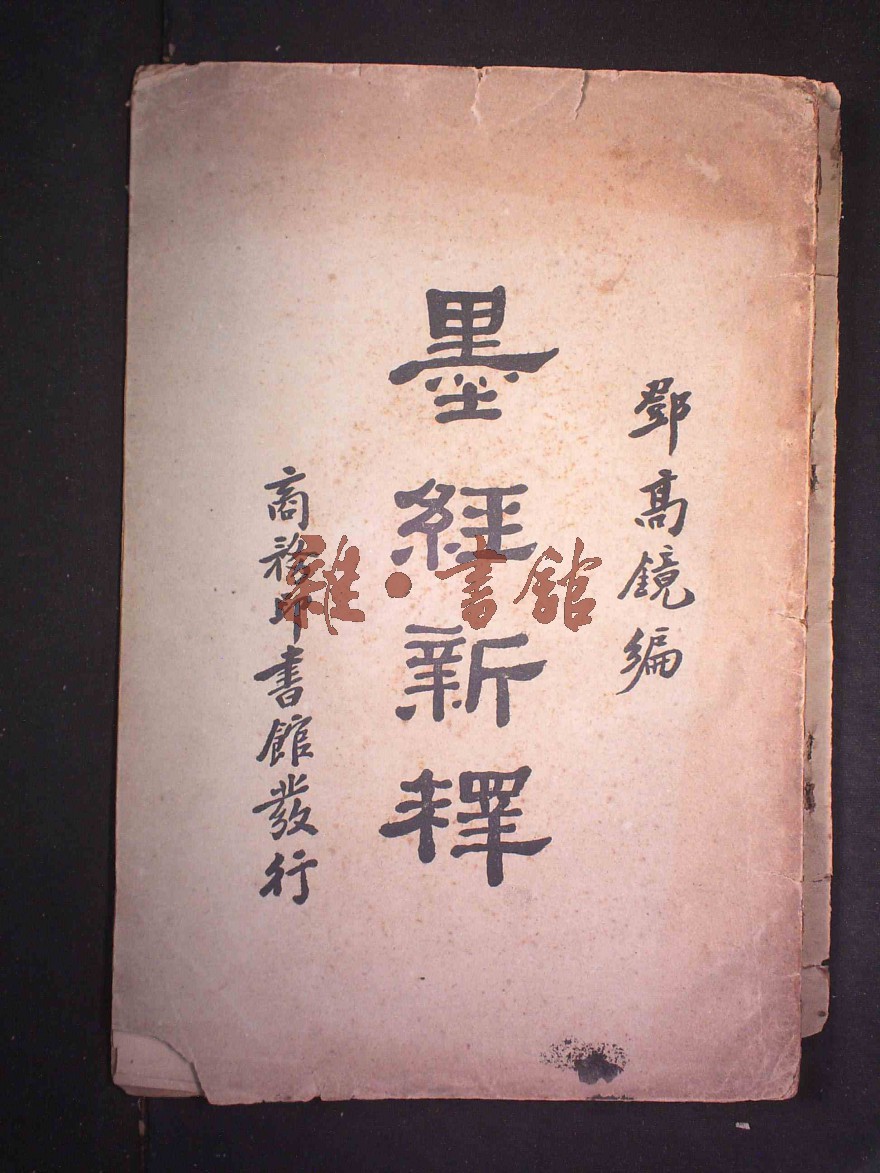 鄧高鏡編
墨經新釋
商務印書館發行
雜·書館